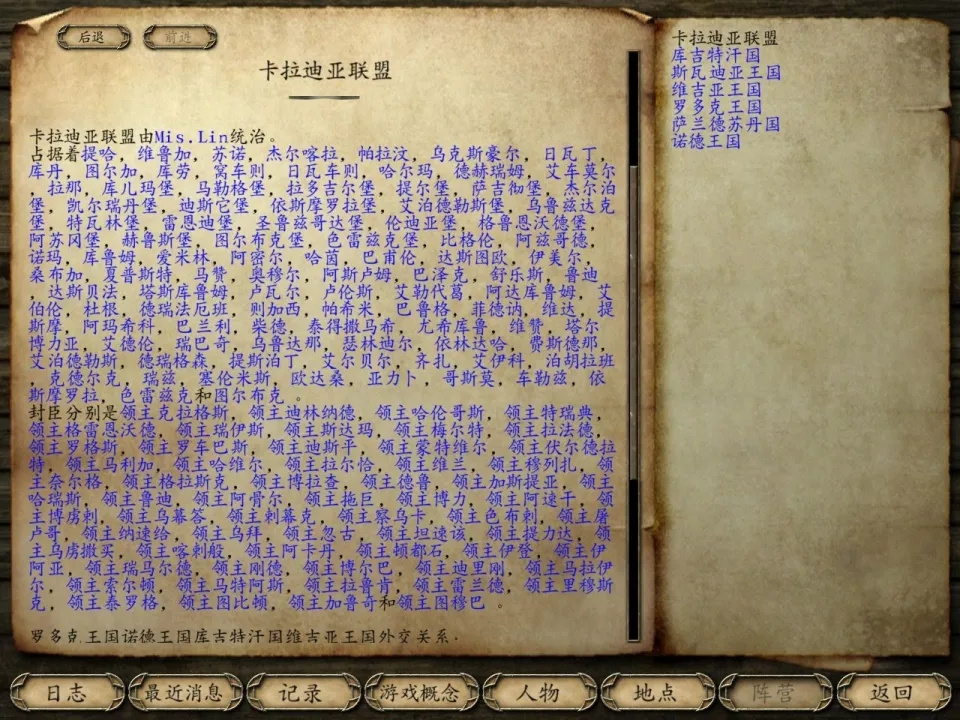 后退
前进
卡拉迪亚联盟
卡拉迪亚联盟由Mis.Lin统治。
占据着提哈，维鲁加，苏诺，杰尔喀拉，帕拉汶，乌克斯豪尔，日瓦丁，
库丹，图尔加，库劳，窝车则，日瓦车则，哈尔玛，德赫瑞姆，艾车莫尔
，拉那，库儿玛堡，马勒格堡，拉多吉尔堡，提尔堡，萨吉彻堡，杰尔泊
堡，凯尔瑞丹堡，迪斯它堡，依斯摩罗拉堡，艾泊德勒斯堡，乌鲁兹达克
堡，特瓦林堡，雷恩迪堡，圣鲁兹哥达堡，伦迪亚堡，格鲁恩沃德堡，
阿苏冈堡，赫鲁斯堡，图尔布克堡，色雷兹克堡，比格伦，阿兹哥德，
诺玛，库鲁姆，爱米林，阿密尔，哈茵，巴甫伦，达斯图欧，伊美尔，
桑布加，夏普斯特，马赞，奥穆尔，阿斯卢姆，巴泽克，舒乐斯，鲁迪
，达斯贝法，塔斯库鲁姆，卢瓦尔，卢伦斯，艾勒代葛，阿达库鲁姆，艾
伯伦，杜根，德瑞法厄班，则加西，帕希米，巴鲁格，菲德讷，维达，提
斯摩，阿玛希科，巴兰利，柴德，泰得撒马希，尤希库鲁，维赞，塔尔
博力亚，艾德伦，瑞巴奇，乌鲁达那，瑟林迪尔，依林达哈，费斯德那，
艾泊德勒斯，德瑞格森，提斯泊丁，艾尔贝尔，齐扎，艾伊科，泊胡拉班
，克德尔克，瑞兹，塞伦米斯，欧达桑，亚力卜，哥斯莫，车勒兹，依
斯摩罗拉，色雷兹克和图尔布克 。
封臣分别是领主克拉格斯，领主迪林纳德，领主哈伦哥斯，领主特瑞典，
领主格雷恩沃德，领主瑞伊斯，领主斯达玛，领主梅尔特，领主拉法德，
领主罗格斯，领主罗车巴斯，领主迪斯平，领主蒙特维尔，领主伏尔德拉
特，领主马利加，领主哈维尔，领主拉尔恰，领主维兰，领主穆列扎，领
主奈尔格，领主格拉斯克，领主博拉查，领主德鲁，领主加斯提亚，领主
哈瑞斯，领主鲁迪，领主阿骨尔，领主拖巨，领主博力，领主阿速干，领
主博虏刺，领主乌幕答，领主刺幕克，领主察乌卡，领主色布刺，领主屠
卢哥，领主纳速给，领主乌拜，领主忽古，领主坦速该，领主提力达，领
主乌虏撒买，领主喀刺般，领主阿卡丹，领主顿都石，领主伊登，领主伊
阿亚，领主瑞马尔德，领主刚德，领主博尔巴，领主迪里刚，领主马拉伊
尔，领主索尔顿，领主马特阿斯，领主拉鲁肯，领主雷兰德，领主里穆斯
克，领主泰罗格，领主图比顿，领主加鲁奇和领主图穆巴 。
罗多克王国诺德王国库吉特汗国维吉亚王国外交关系.
卡拉迪亚联盟
库吉特汗国
斯瓦迪亚王国
维吉亚王国
罗多克王国
萨兰德苏丹国
诺德王国
日志
最近消息
记录
游戏概念
人物
地点
阵营
返回